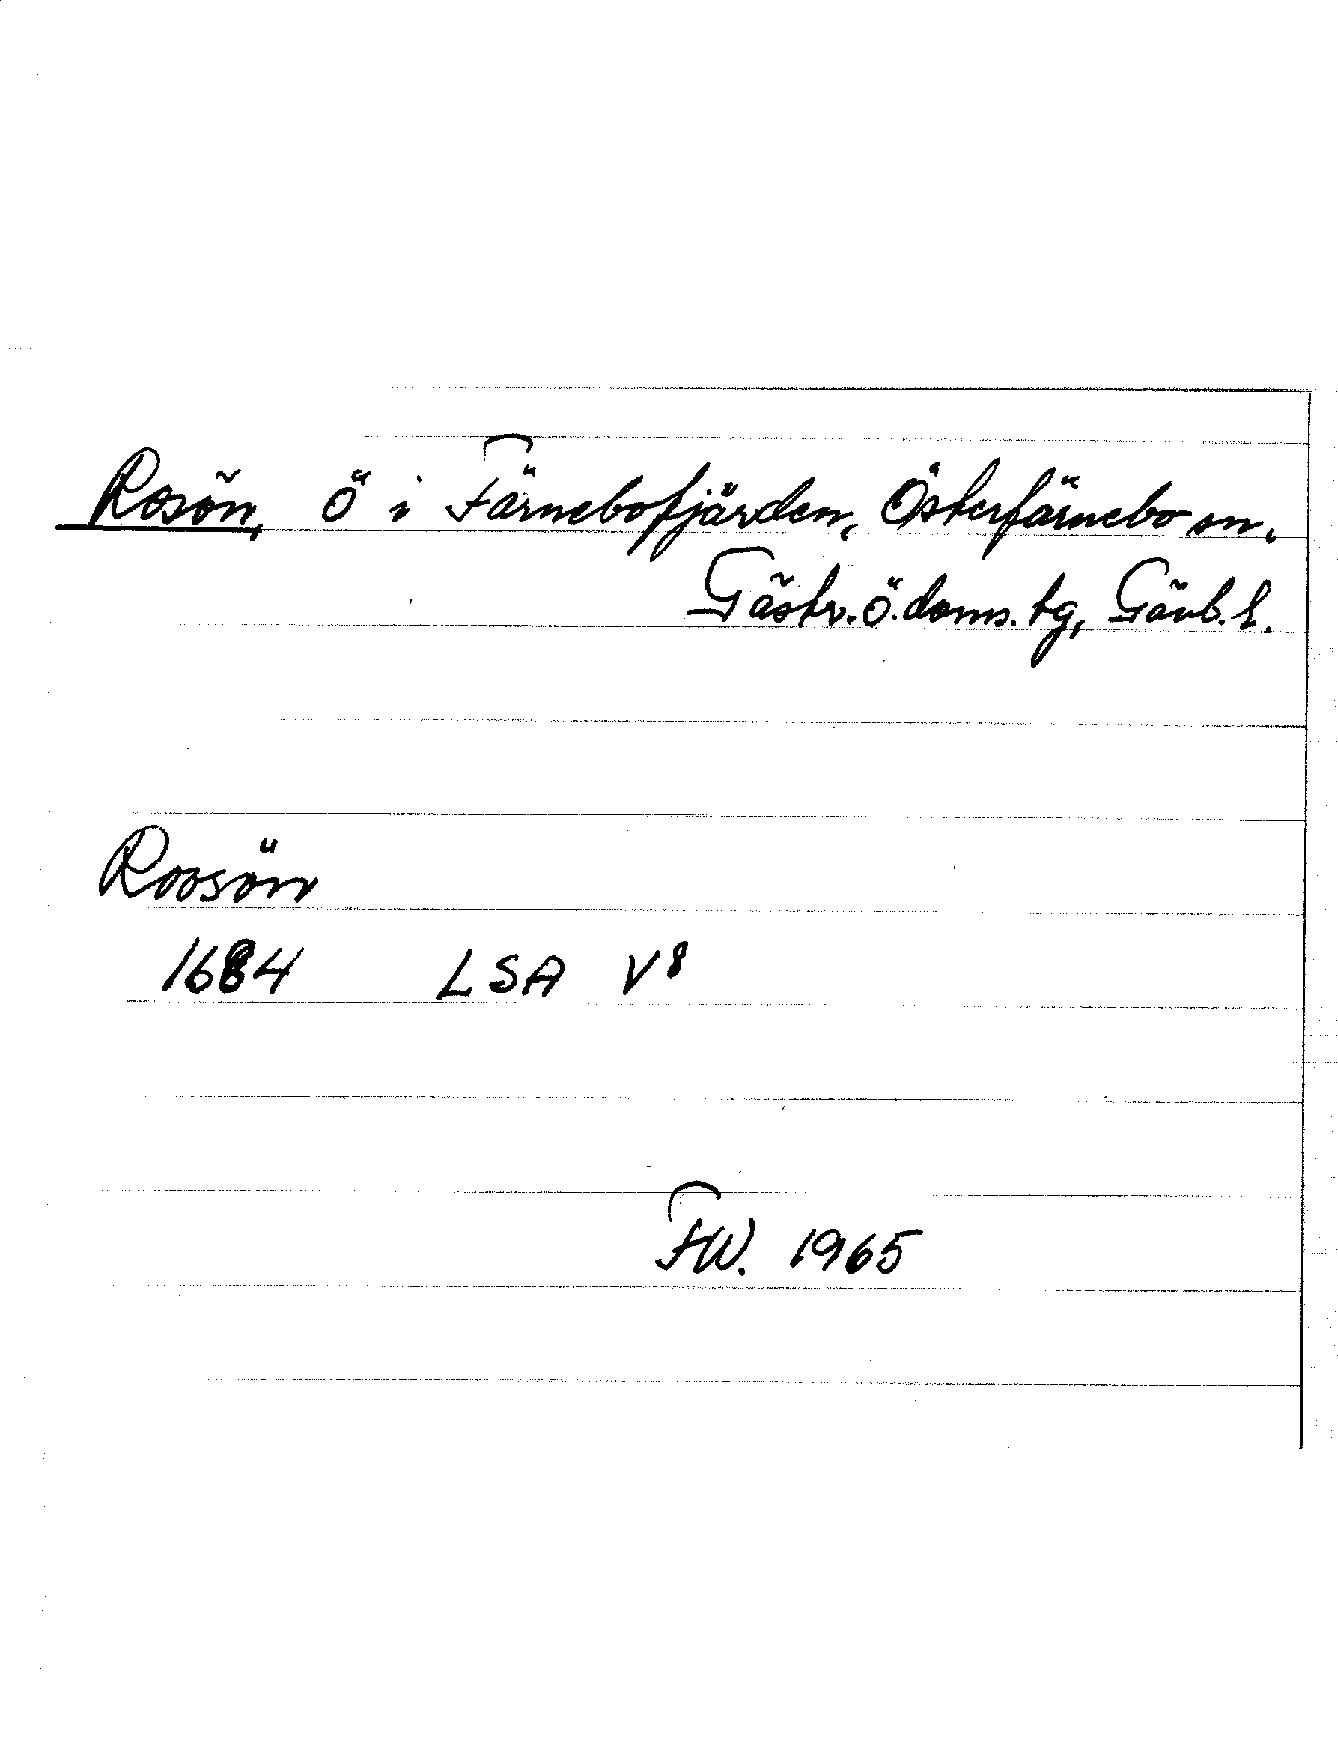 Rosön, ö i Färnebofjärden, Österfärnebo sn.
Gästr. ö. doms. tg, Gävb. l.
Roosön
1684 LSA V⁸
FW. 1965